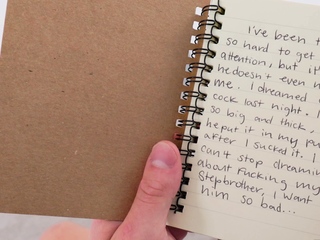 I've been t
so hard to get
attention, but it'
he doesn't even n
me. I dreamed
cock last night. I
so big and thick,
he put it in my pu
after I sucked it. I
can't stop dreamin
about fucking my
Stepbrother. I want
him so bad...